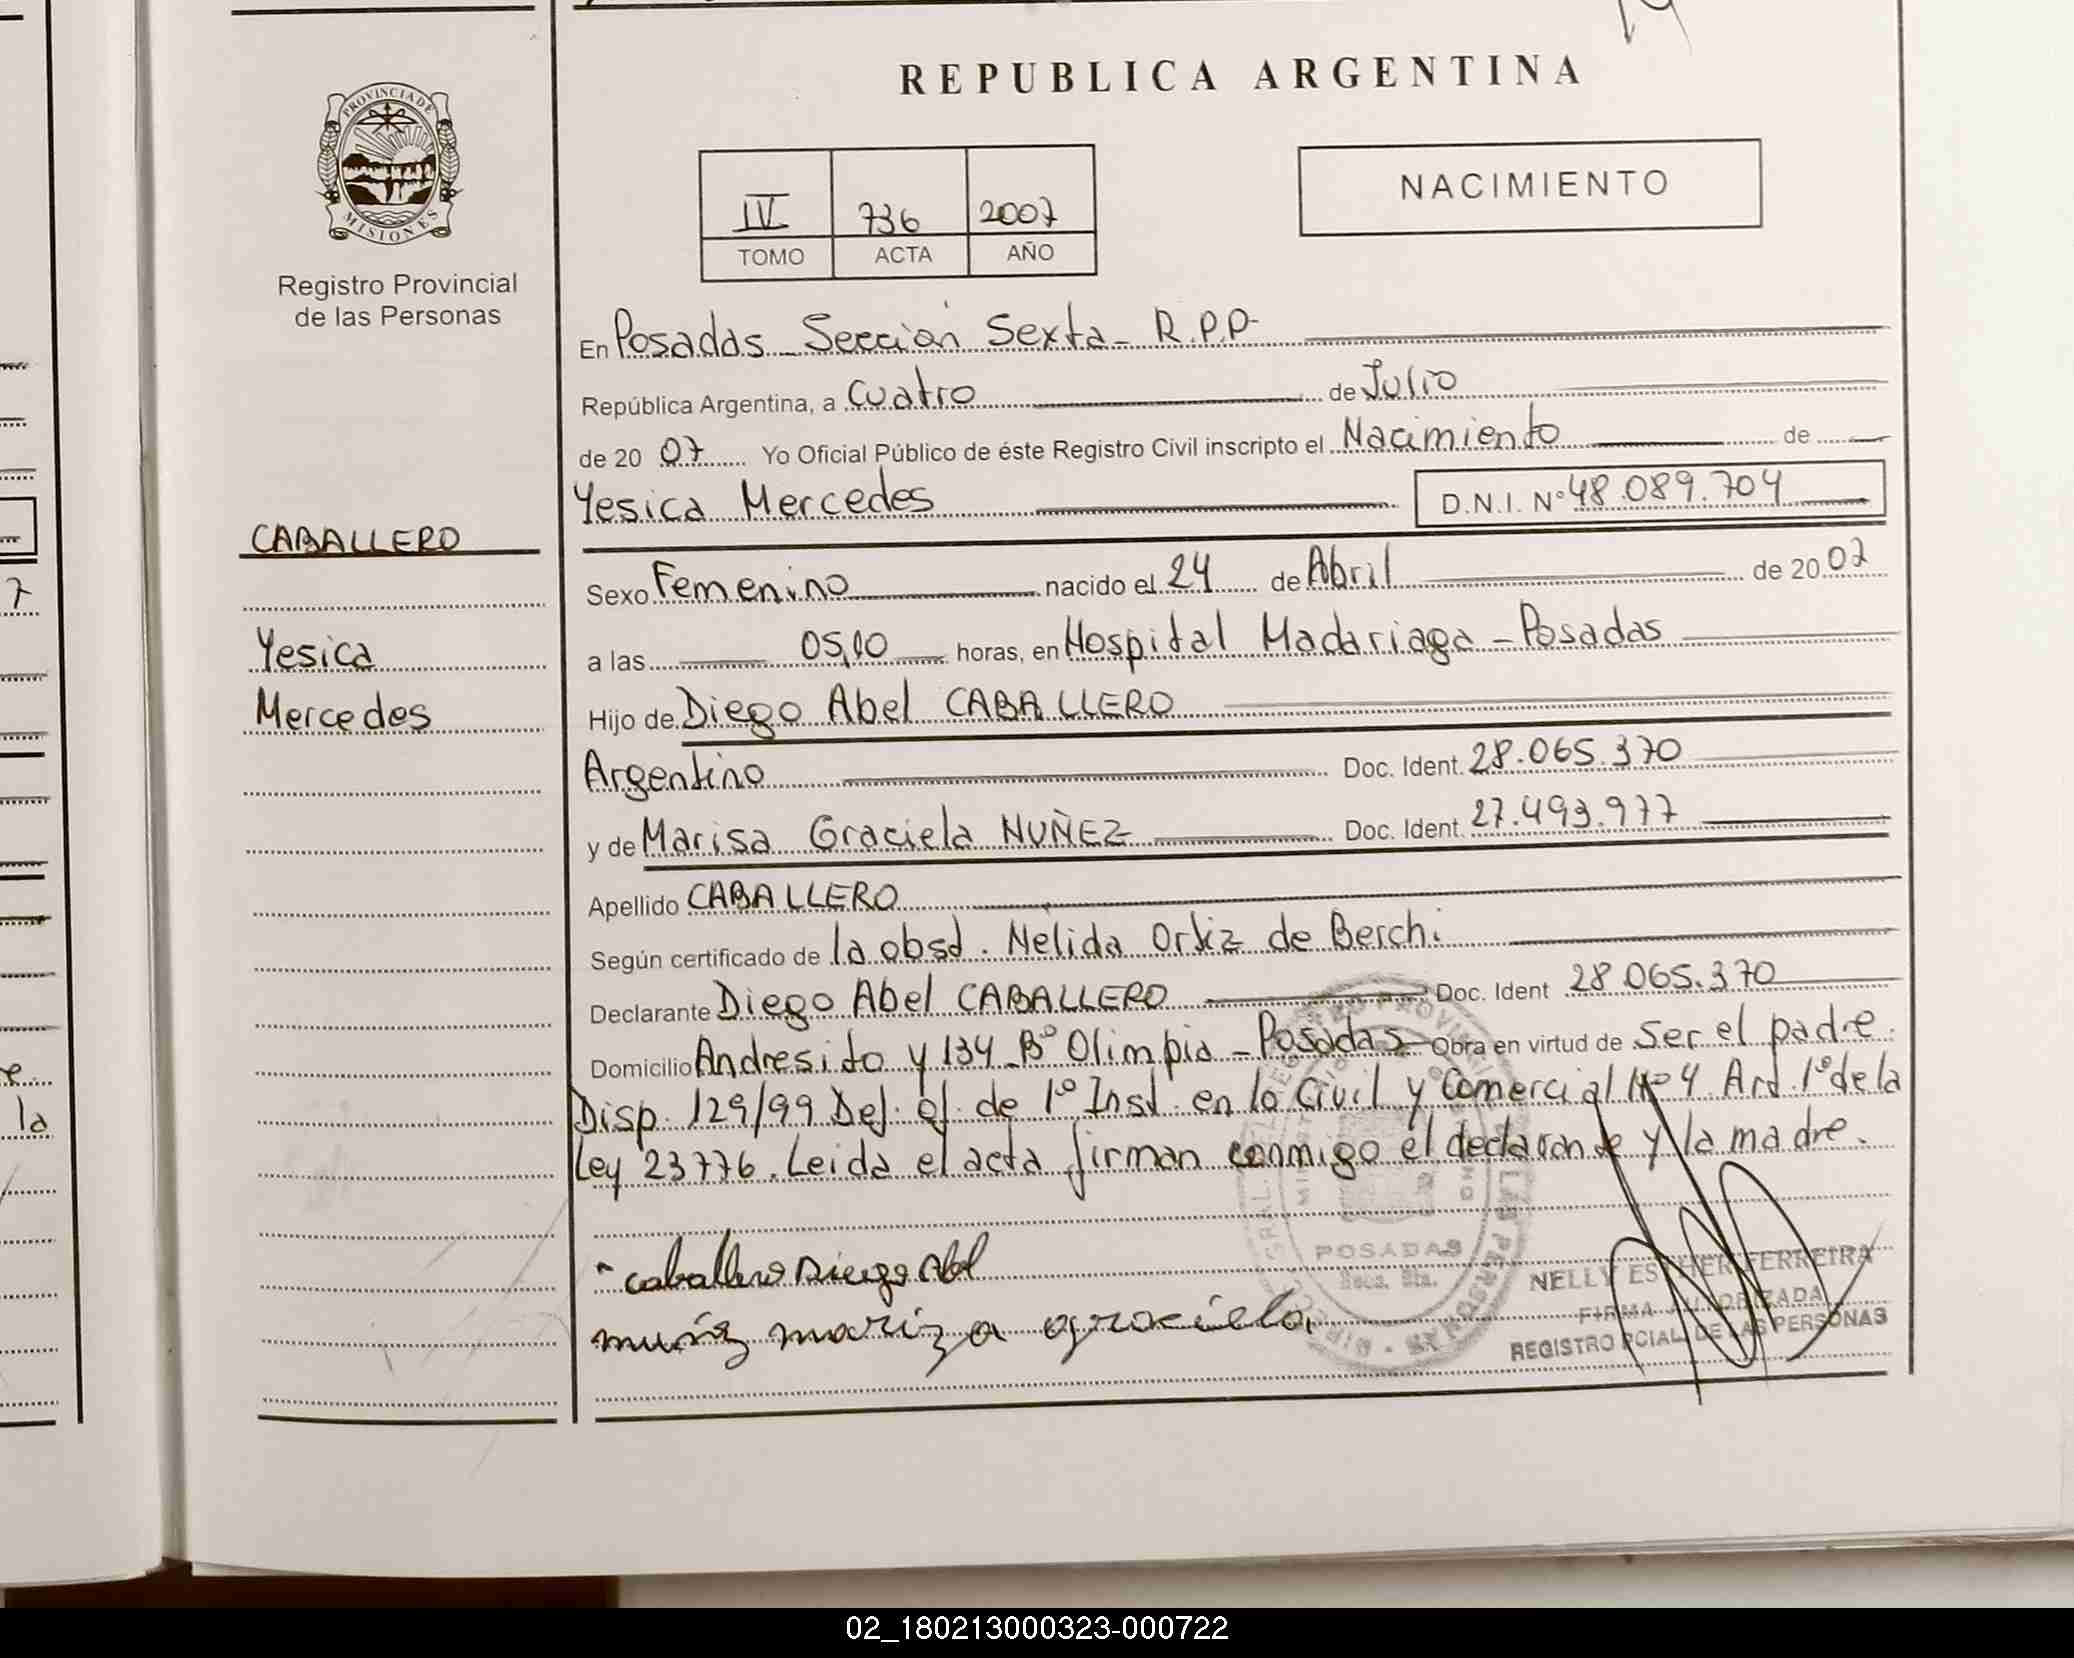 REPUBLICA ARGENTINA
PROVINCIA DE
MISIONES
Registro Provincial
de las Personas
IV 736 2007
TOMO ACTA AÑO
NACIMIENTO
En Posadas Sección Sexta - R.P.P-
República Argentina, a Cuatro de Julio
de 20 07 Yo Oficial Público de éste Registro Civil inscripto el Nacimiento de
Yesica Mercedes D.N.I. Nº 48.089.704
CABALLERO
Yesica
Mercedes
Sexo Femenino nacido el 24 de Abril de 20 07
a las 05,10 horas, en Hospital Madariaga - Posadas
Hijo de Diego Abel CABALLERO
Argentino Doc. Ident. 28.065.370
y de Marisa Graciela NUÑEZ Doc. Ident. 27.493.977
Apellido CABALLERO
Según certificado de la obst. Nelida Ortiz de Berchi
Declarante Diego Abel CABALLERO Doc. Ident 28.065.370
Domicilio Andresito y 134 Bº Olimpia - Posadas Obra en virtud de ser el padre.
Disp. 129/99 Def. of. de 1º Inst. en lo Civil y Comercial Nº 4 Art. 1º de la
Ley 23776. Leida el acta firman conmigo el declarante y la madre.
caballero Diego Abel
muñez mariza graciela
POSADAS
Secc. 6ta.
NELLY ESTHER FERREIRA
FIRMA AUTORIZADA
REGISTRO PCIAL. DE LAS PERSONAS
7
e.
la
02_180213000323-000722